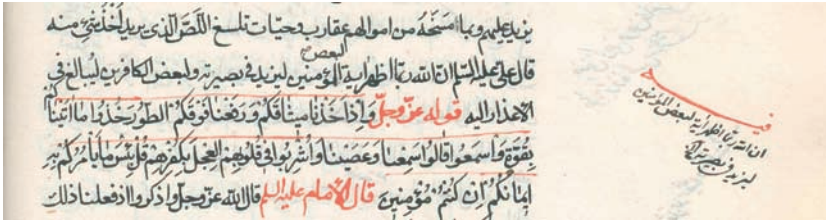 يزيد عليهم وبما امسخه من اموالهم عقارب وحيات تلسع اللص الذى يريد اخذ شئ منه
البعض
قال على عليه السلم ان الله ربما اظهر اية المؤمنين ليزيد فى بصيرته ولبعض الكافرين ليبالغ فى
الاعذار اليه قوله عز وجل وَاِذ اَخَذنا ميثاقَكُم وَرَفَعنا فَوقَكُمُ الطّورَ خُذُوا ما اتَيناكُم
بِقُوَّةٍ واسمعوا قالوا سَمِعنا وَعَصَينا وَاُشرِبوا فى قُلوبِهِمُ العِجلَ بِكُفرِهِم قُل بِئسَما يَأمُرُكُم بِهِ
ايمانُكُم اِن كُنتُم مُؤمِنينَ قال الامام عليه السلم قال الله عز وجل واذكروا اذ فعلنا ذلك
فيه
ان الله ربما اظهر اية لبعض المؤمنين
ليزيد فى بصيرته